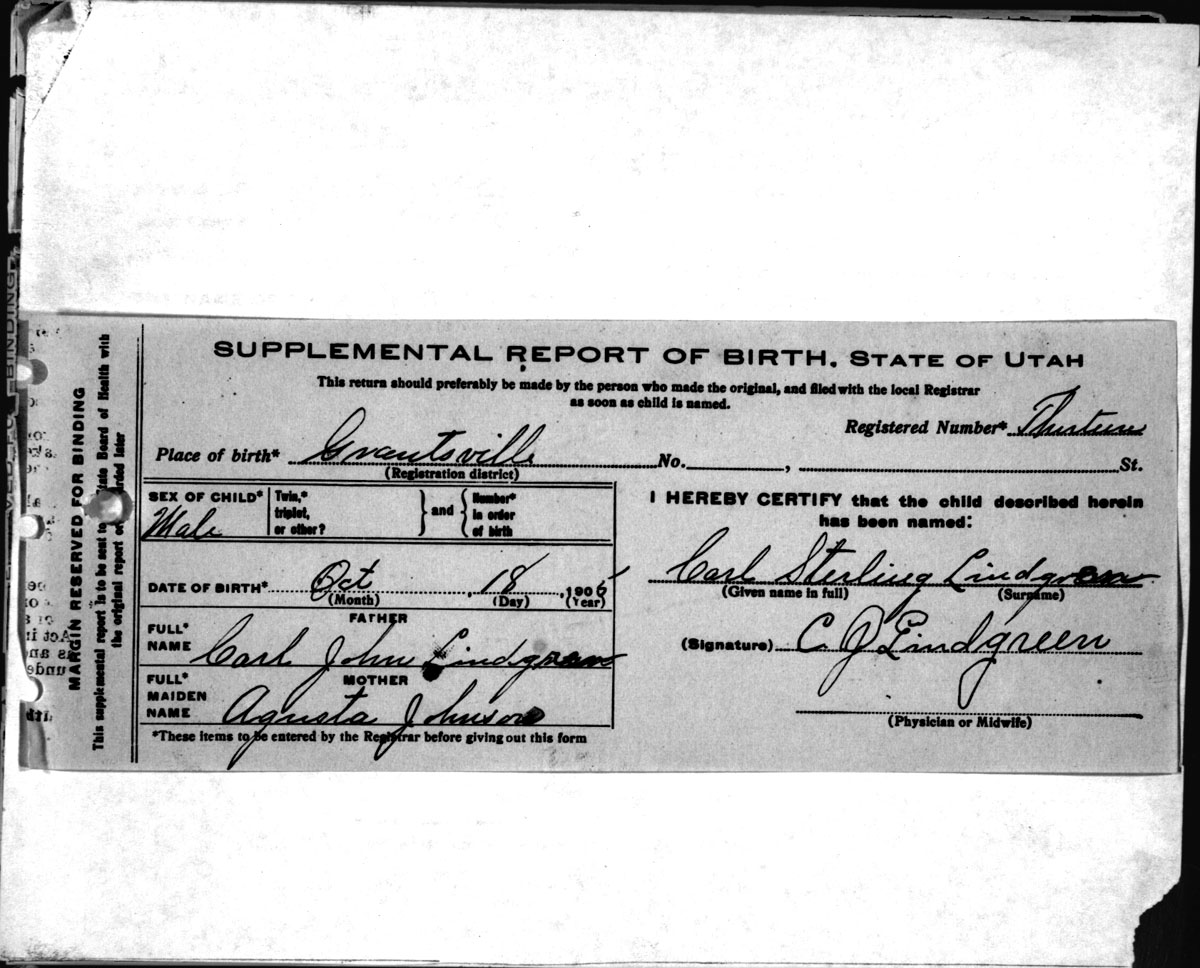 SUPPLEMENTAL REPORT OF BIRTH. STATE OF UTAH
This return should preferably be made by the person who made the original, and filed with the local Registrar
as soon as child is named.
Registered Number* Thirteen
Place of birth* Grantsville No. , St.
(Registration district)
SEX OF CHILD* Male
Twin,* triplet, or other? } and { Number* in order of birth
DATE OF BIRTH* Oct 18, 1906
(Month) (Day) (Year)
FATHER
FULL* NAME Carl John Lindgreen
MOTHER
FULL* MAIDEN NAME Agusta Johnson
*These items to be entered by the Registrar before giving out this form
I HEREBY CERTIFY that the child described herein
has been named:
Carl Sterling Lindgreen
(Given name in full) (Surname)
(Signature) C J Lindgreen
(Physician or Midwife)
MARGIN RESERVED FOR BINDING
This supplemental report is to be sent to State Board of Health with
the original report or later